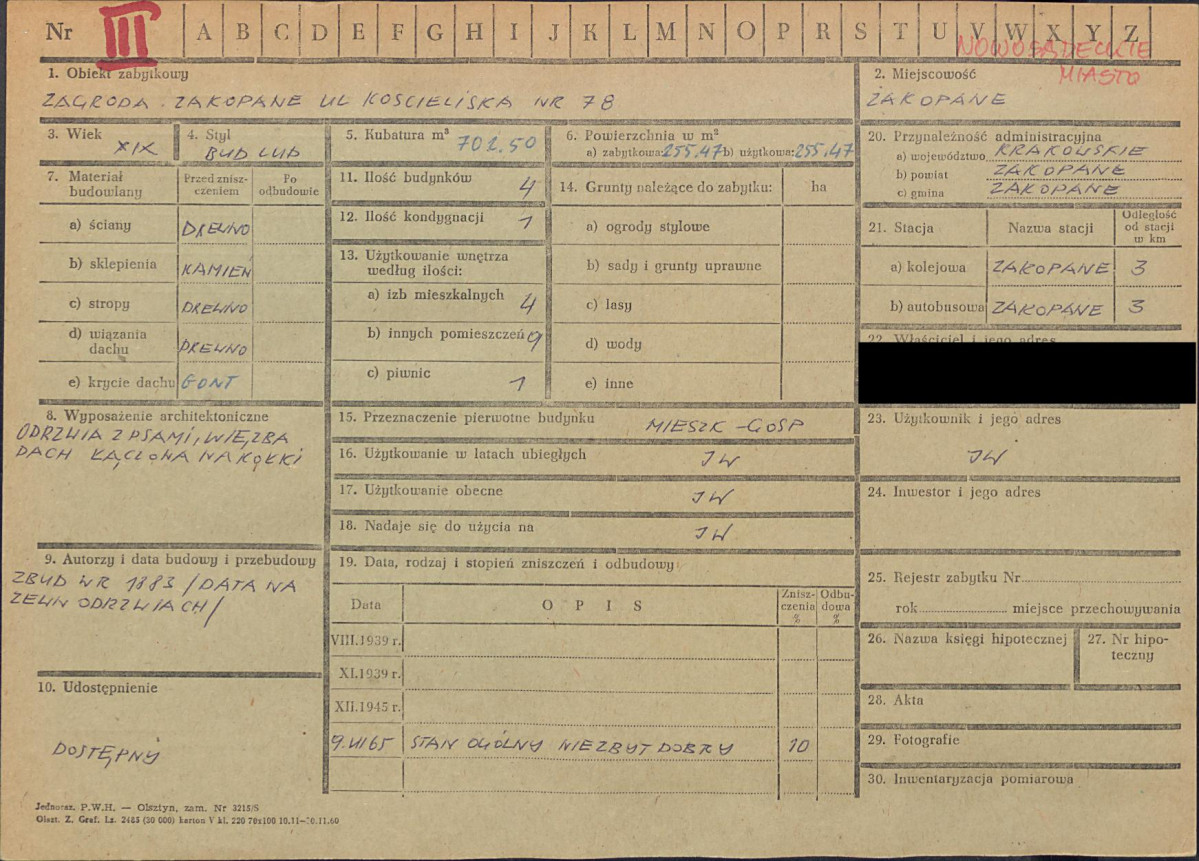 Nr III A B C D E F G H I J K L M N O P R S T U V W X Y Z
NOWOSĄDECKIE
MIASTO
1. Obiekt zabytkowy
ZAGRODA. ZAKOPANE UL KOSCIELISKA NR 78
2. Miejscowość
ZAKOPANE
3. Wiek
XIX
4. Styl
BUD LUD
5. Kubatura m³
702.50
6. Powierzchnia w m²
a) zabytkowa: 255,47 b) użytkowa: 255,47
7. Materiał budowlany
Przed znisz-
czeniem
Po
odbudowie
a) ściany DREWNO
b) sklepienia KAMIEŃ
c) stropy DREWNO
d) wiązania
dachu DREWNO
e) krycie dachu GONT
8. Wyposażenie architektoniczne
ODRZWIA Z PSAMI, WIĘZBA
DACH ŁĄCZONA NA KOŁKI
9. Autorzy i data budowy i przebudowy
ZBUD W R 1883 /DATA NA
ZEWN ODRZWIACH/
10. Udostępnienie
DOSTĘPNY
11. Ilość budynków 4
12. Ilość kondygnacji 1
13. Użytkowanie wnętrza
według ilości:
a) izb mieszkalnych 4
b) innych pomieszczeń 9
c) piwnic 1
14. Grunty należące do zabytku: ha
a) ogrody stylowe
b) sady i grunty uprawne
c) lasy
d) wody
e) inne
15. Przeznaczenie pierwotne budynku MIESZK-GOSP
16. Użytkowanie w latach ubiegłych JW
17. Użytkowanie obecne JW
18. Nadaje się do użycia na JW
19. Data, rodzaj i stopień zniszczeń i odbudowy
Data OPIS Znisz-
czenia
% Odbu-
dowa
%
VIII.1939 r.
XI.1939 r.
XII.1945 r.
9.VII65 STAN OGÓLNY NIEZBYT DOBRY 10
20. Przynależność administracyjna
a) województwo KRAKOWSKIE
b) powiat ZAKOPANE
c) gmina ZAKOPANE
21. Stacja Nazwa stacji Odległość
od stacji
w km
a) kolejowa ZAKOPANE 3
b) autobusowa ZAKOPANE 3
22. Właściciel i jego adres
23. Użytkownik i jego adres
JW
24. Inwestor i jego adres
25. Rejestr zabytku Nr
rok miejsce przechowywania
26. Nazwa księgi hipotecznej
27. Nr hipo-
teczny
28. Akta
29. Fotografie
30. Inwentaryzacja pomiarowa
Jednoraz. P.W.H. — Olsztyn, zam. Nr 3215/S
Olszt. Z. Graf. Lz. 2485 (30 000) karton V kl. 220 70x100 10.11—30.11.60